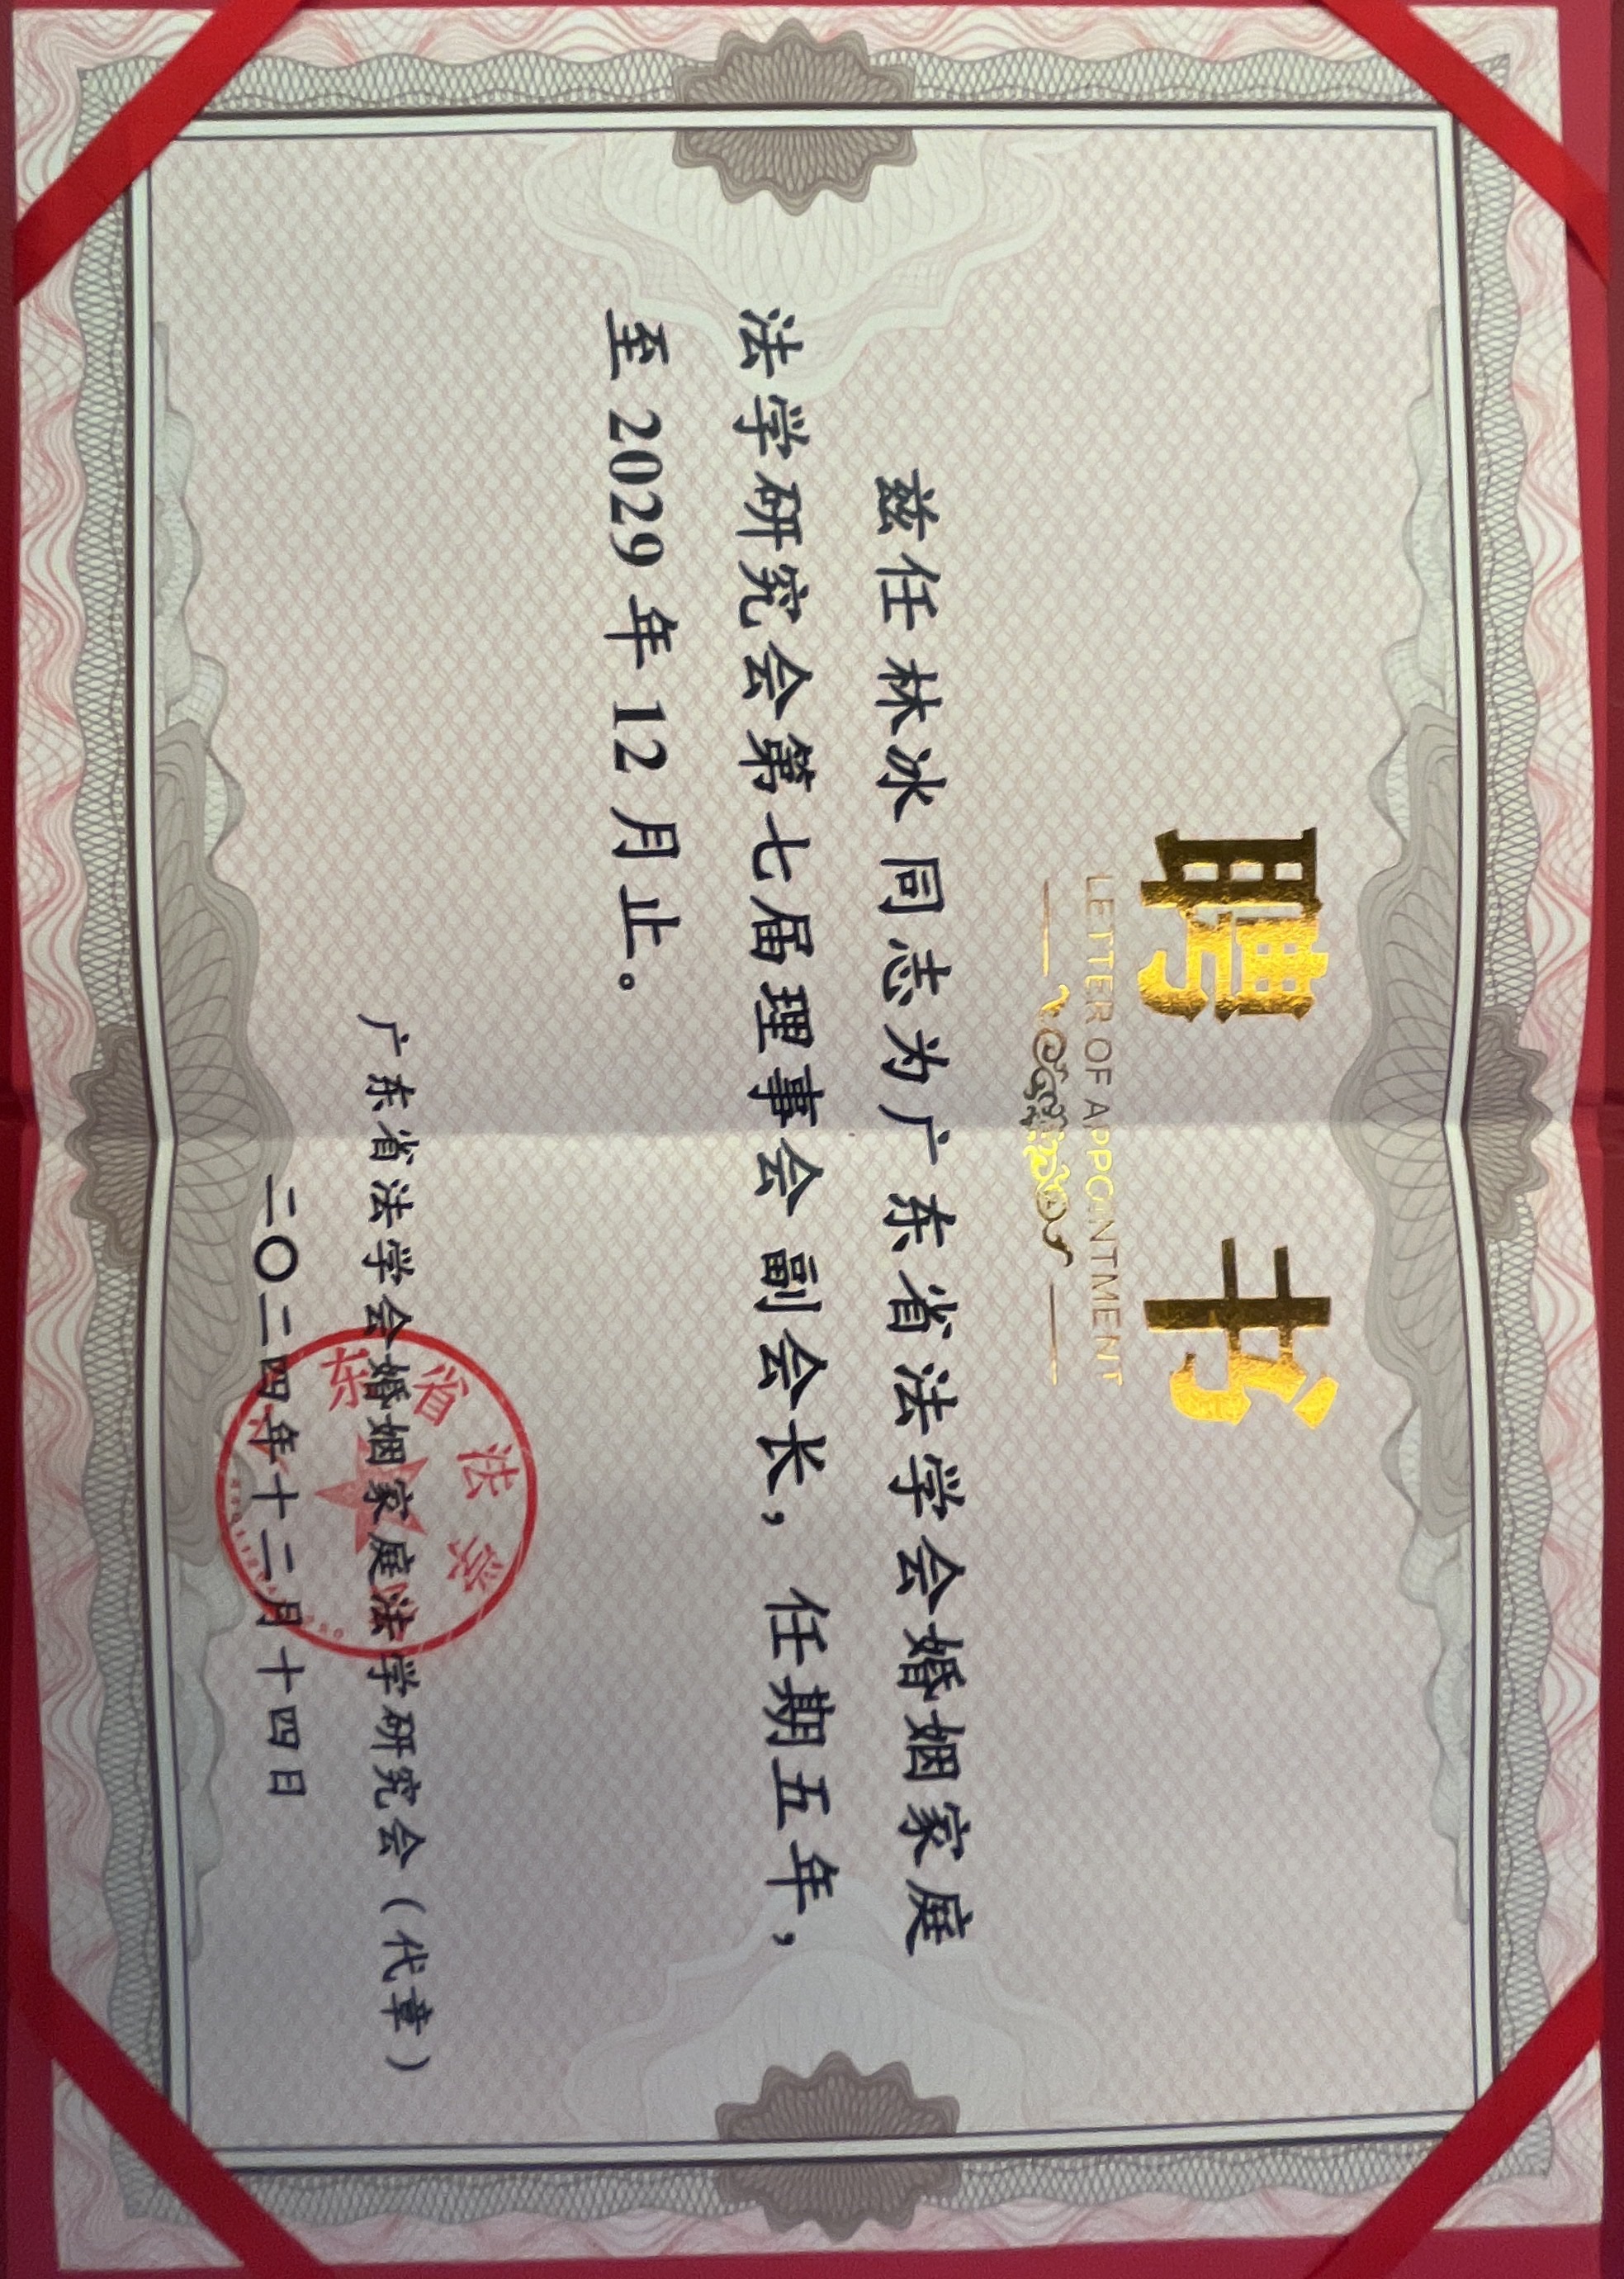 聘 书
LETTER OF APPOINTMENT
兹任林冰同志为广东省法学会婚姻家庭
法学研究会第七届理事会副会长，任期五年，
至 2029 年 12 月止。
广东省法学会婚姻家庭法学研究会（代章）
二〇二四年十二月十四日
东省法学